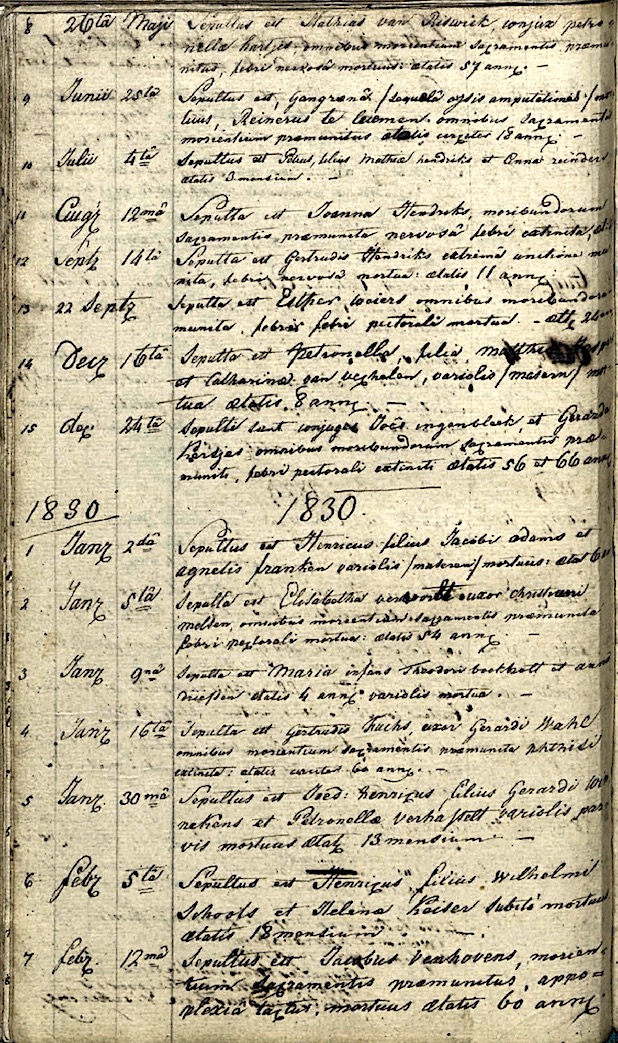 8 26ta Maji Sepultus est Mathias van Riswick, conjux petro
nellæ hartjes omnibus morientium sacramentis præmu
nitus, febri nervosâ mortuus: ætatis 57 ann. —
9 Junii 25ta Sepultus est, gangrenâ /sequelâ ossis amputationis/
Reinerus te omnibus sacramentis
morientium præmunitus ætatis circiter 18 ann: —
10 Julii 4ta Sepultus est Petrus, filius Mathiæ hendriks et Anna reinders
ætatis 3 mensium. —
11 Aug 12mâ Sepulta est Joanna Hendriks, moribundorum
sacramentis præmunita nervosâ febri extincta,
12 Sept 14ta Sepulta est Gertrudis Hendriks extremâ unctione mu
nita, febri nervosâ mortua: ætatis 11 ann:
13 22 Sept Sepulta est Esther, omnibus moribundorum
munita, febri pectorali mortua -
14 Dec 16ta Sepulta est Petronella, filia
et Catharinæ van veghelen, variolis /masern/ mor
tua ætatis 8 ann: —
15 dec. 24ta Sepulti sunt conjuges Joēs ingenbleek et Gerarda
hertjes omnibus moribundorum sacramentis præ
muniti, febri pectorali extincti ætatis 56 et 66 ann
1830 1830.
1 Jan 2dâ Sepultus est Henricus filius Jacobi adams et
agnetis franken variolis /masern/ mortuus: ætat 6
2 Jan 5tâ Sepulta est Elisabetha uxor christiani
melsen, omnibus morientium sacramentis præmunita
febri pectorali mortua: ætatis 54 ann. —
3 Jan 9nâ Sepulta est Maria infans Theodori bockholt et anna
driessen ætatis 4 ann variolis mortua. —
4 Jan 16tâ Sepulta est Gertrudis fuchs, uxor Gerardi Wahl
omnibus morientium sacramentis præmunita phthisi
extincta: ætatis circiter 60 ann. —
5 Jan 30mâ Sepultus est Joēs: henricus filius Gerardi
nekens et Petronellæ verhasselt variolis par
vis mortuus ætat 13 mensium —
6 feb 5tâ Sepultus est Henricus filius Wilhelmi
Schoots et Helenæ Keiser subito mortuus
ætatis 18 mensium —
7 feb. 12mâ Sepultus est Jacobus Venhovens, morien-
tium sacramentis præmunitus, appo=
plexiâ tactus, mortuus ætatis 60 ann